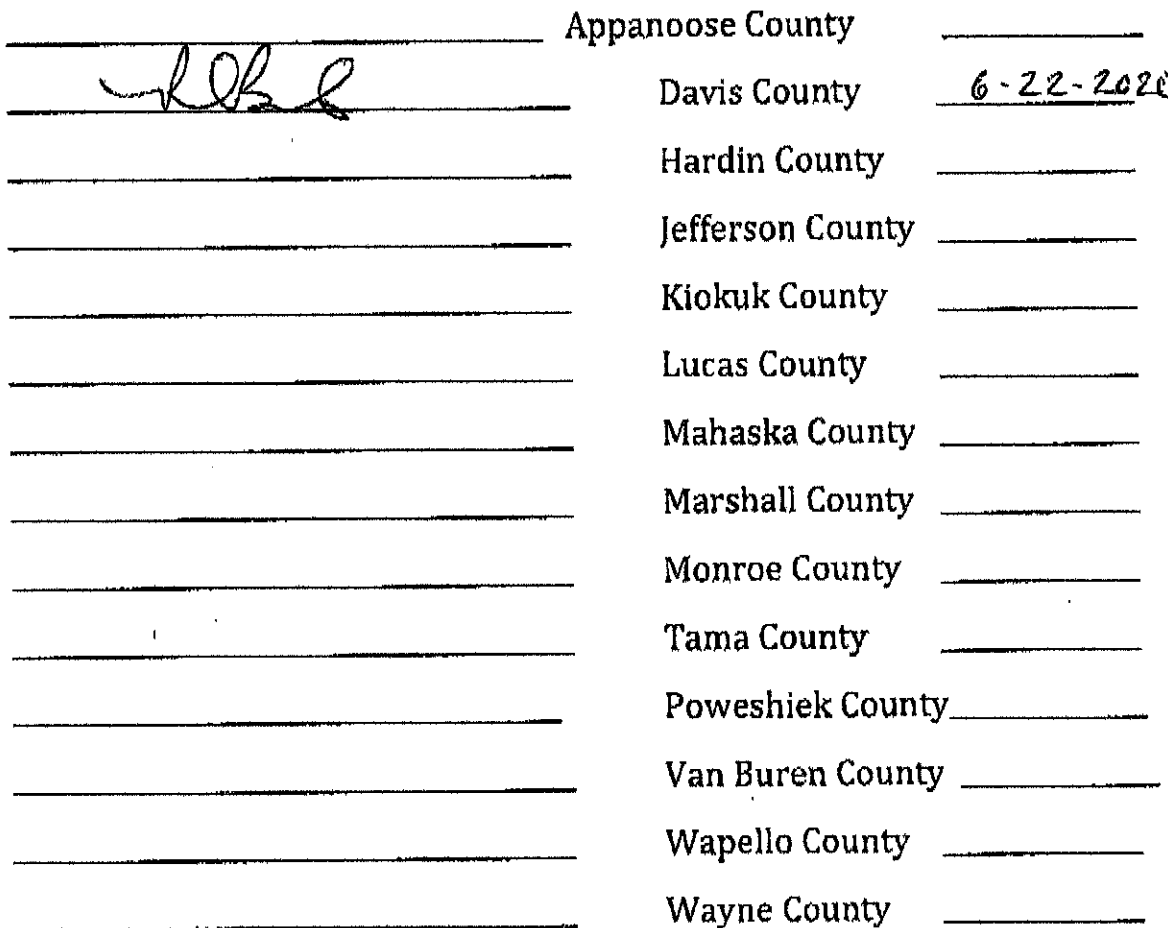 Appanoose County
Davis County 6-22-2020
Hardin County
Jefferson County
Kiokuk County
Lucas County
Mahaska County
Marshall County
Monroe County
Tama County
Poweshiek County
Van Buren County
Wapello County
Wayne County